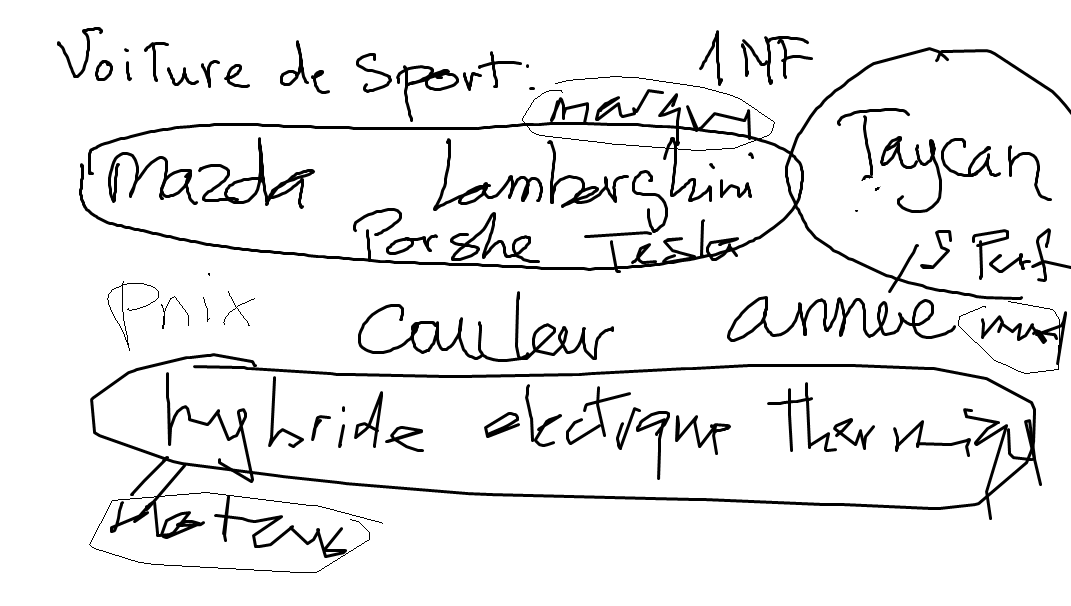 Voiture de Sport: 1NF
marque
Mazda Lamborghini Taycan
Porshe Tesla S Perf
Prix couleur année
hybride electrique thermique
Moteur